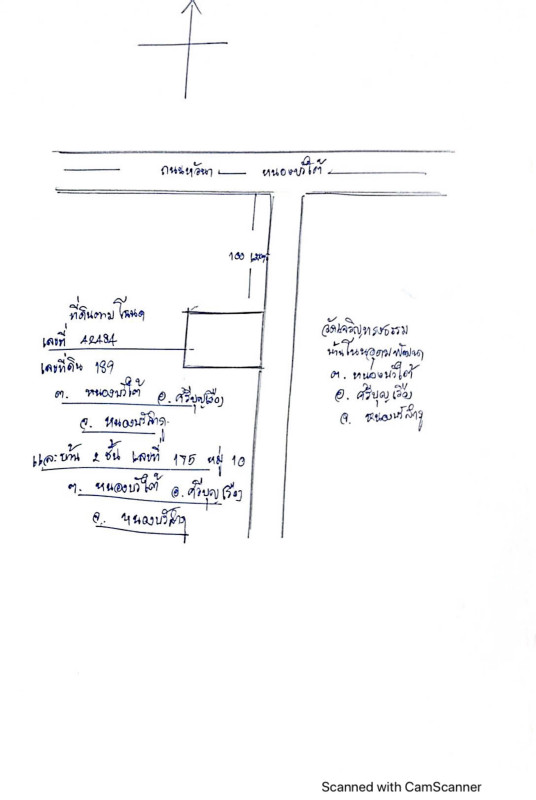 ถนนหัวนา — หนองบัวใต้
100 เมตร
ที่ดินตามโฉนด
เลขที่ 42484
เลขที่ดิน 189
ต. หนองบัวใต้ อ. ศรีบุญเรือง
จ. หนองบัวลำภู
และบ้าน 2 ชั้น เลขที่ 175 หมู่ 10
ต. หนองบัวใต้ อ. ศรีบุญเรือง
จ. หนองบัวลำภู
วัดเจริญทรงธรรม
บ้านโนนอุดมพัฒนา
ต. หนองบัวใต้
อ. ศรีบุญเรือง
จ. หนองบัวลำภู
Scanned with CamScanner